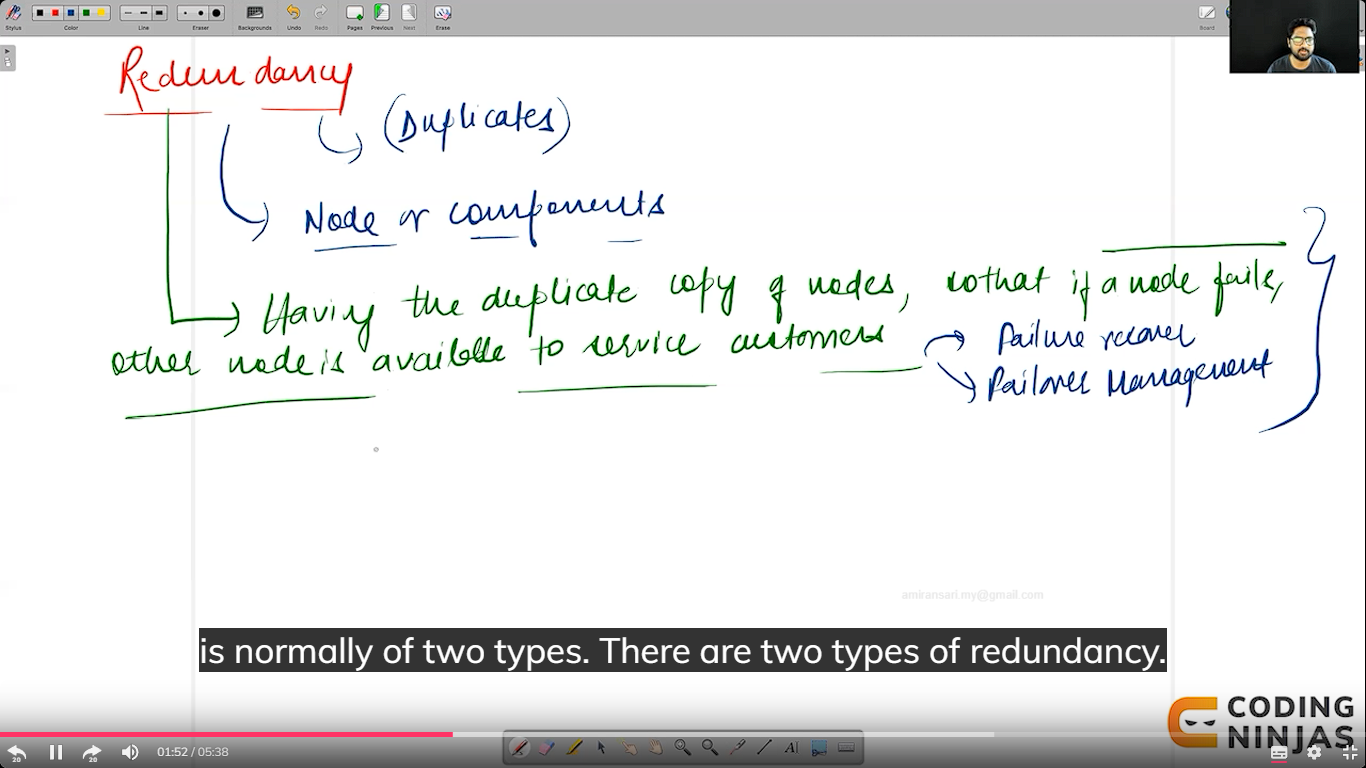 Stylus
Color
Line
Eraser
Backgrounds
Undo
Redo
Pages
Previous
Next
Erase
Board
Redundancy
(Duplicates)
Node or components
Having the duplicate copy of nodes, so that if a node fails,
other node is available to service customers
Failure recover
Failover Management
amiransari.my@gmail.com
is normally of two types. There are two types of redundancy.
CODING
NINJAS
20
20
01:52 / 05:38